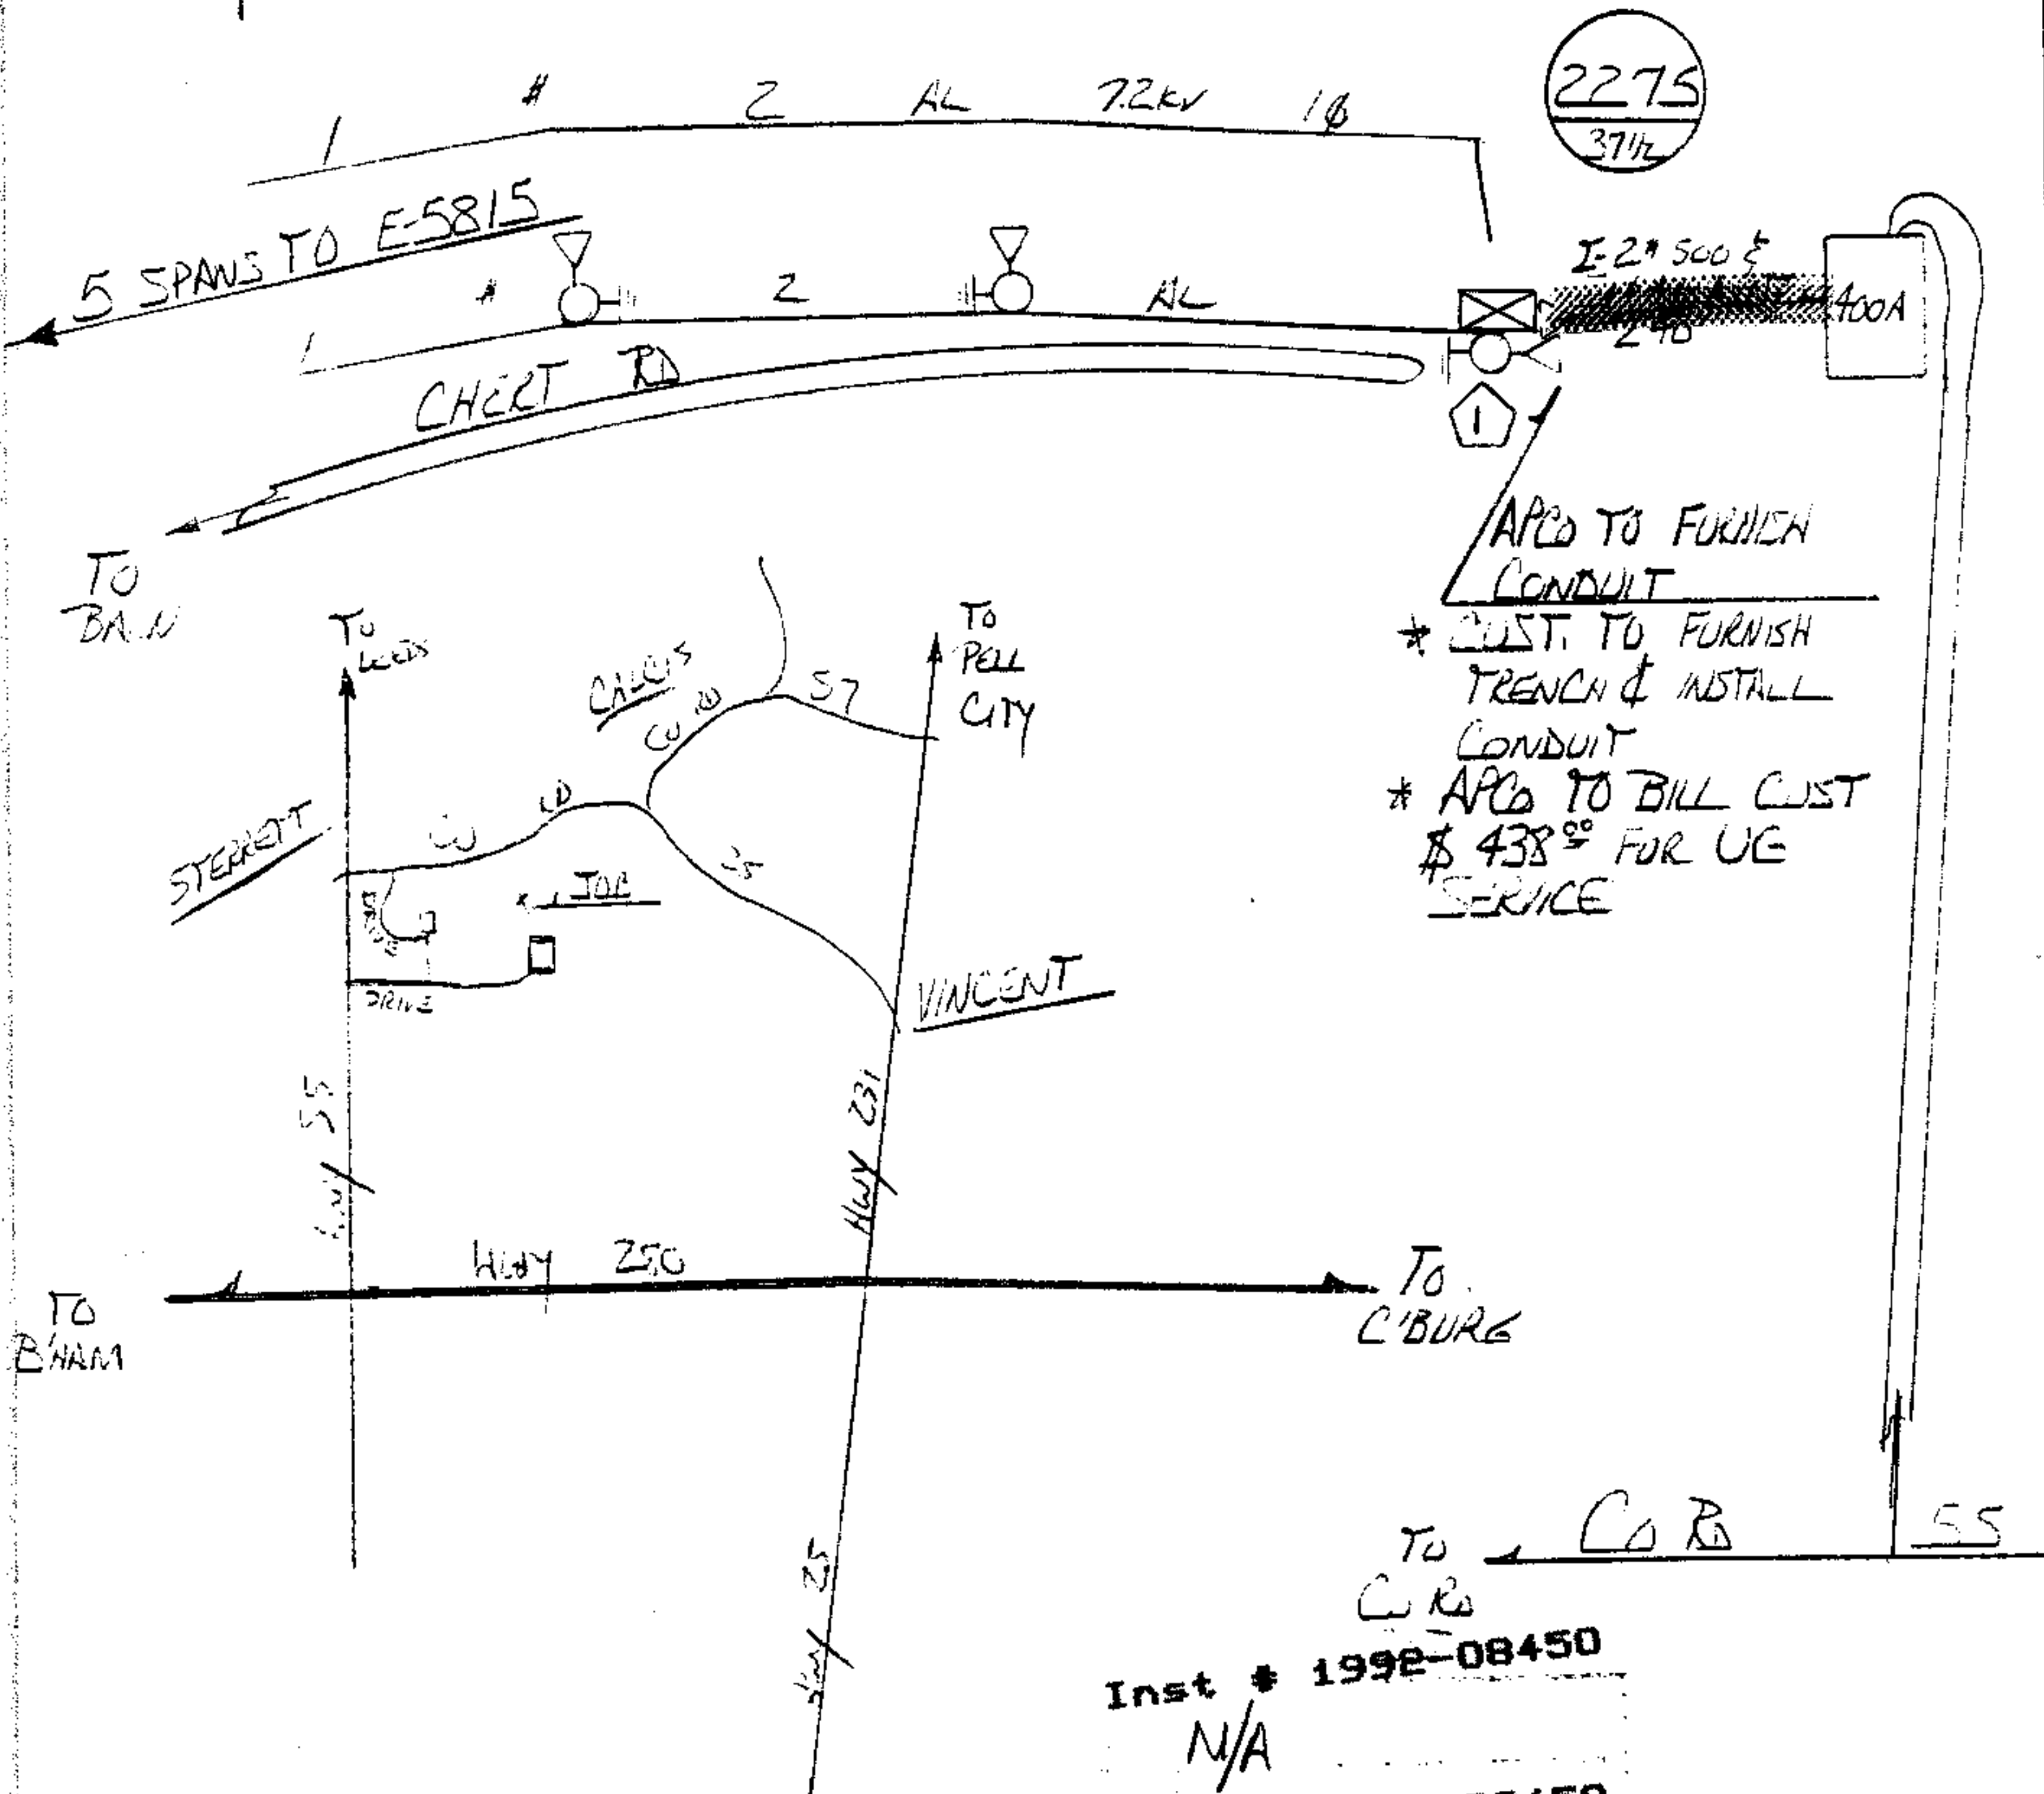 1 # 2 AL 7.2KV 1Ø
2275
37½
5 SPANS TO E-5815
1 # 2 AL
I-2" 500 ¢
400A
CHERT RD
1
TO
APCO TO FURNISH
CONDUIT
* CUST. TO FURNISH
TRENCH & INSTALL
CONDUIT
* APCO TO BILL CUST
$ 438.00 FOR UG
SERVICE
TO
LEEDS
TO
PELL
CITY
CALCIS
CO RD 57
STERRETT
CO RD
25
JOB
DRIVE
VINCENT
HWY 55
HWY 231
HWY 280
TO
B'HAM
TO
C'BURG
HWY 25
CO RD 55
TO
CO RD
Inst # 1992-08450
N/A